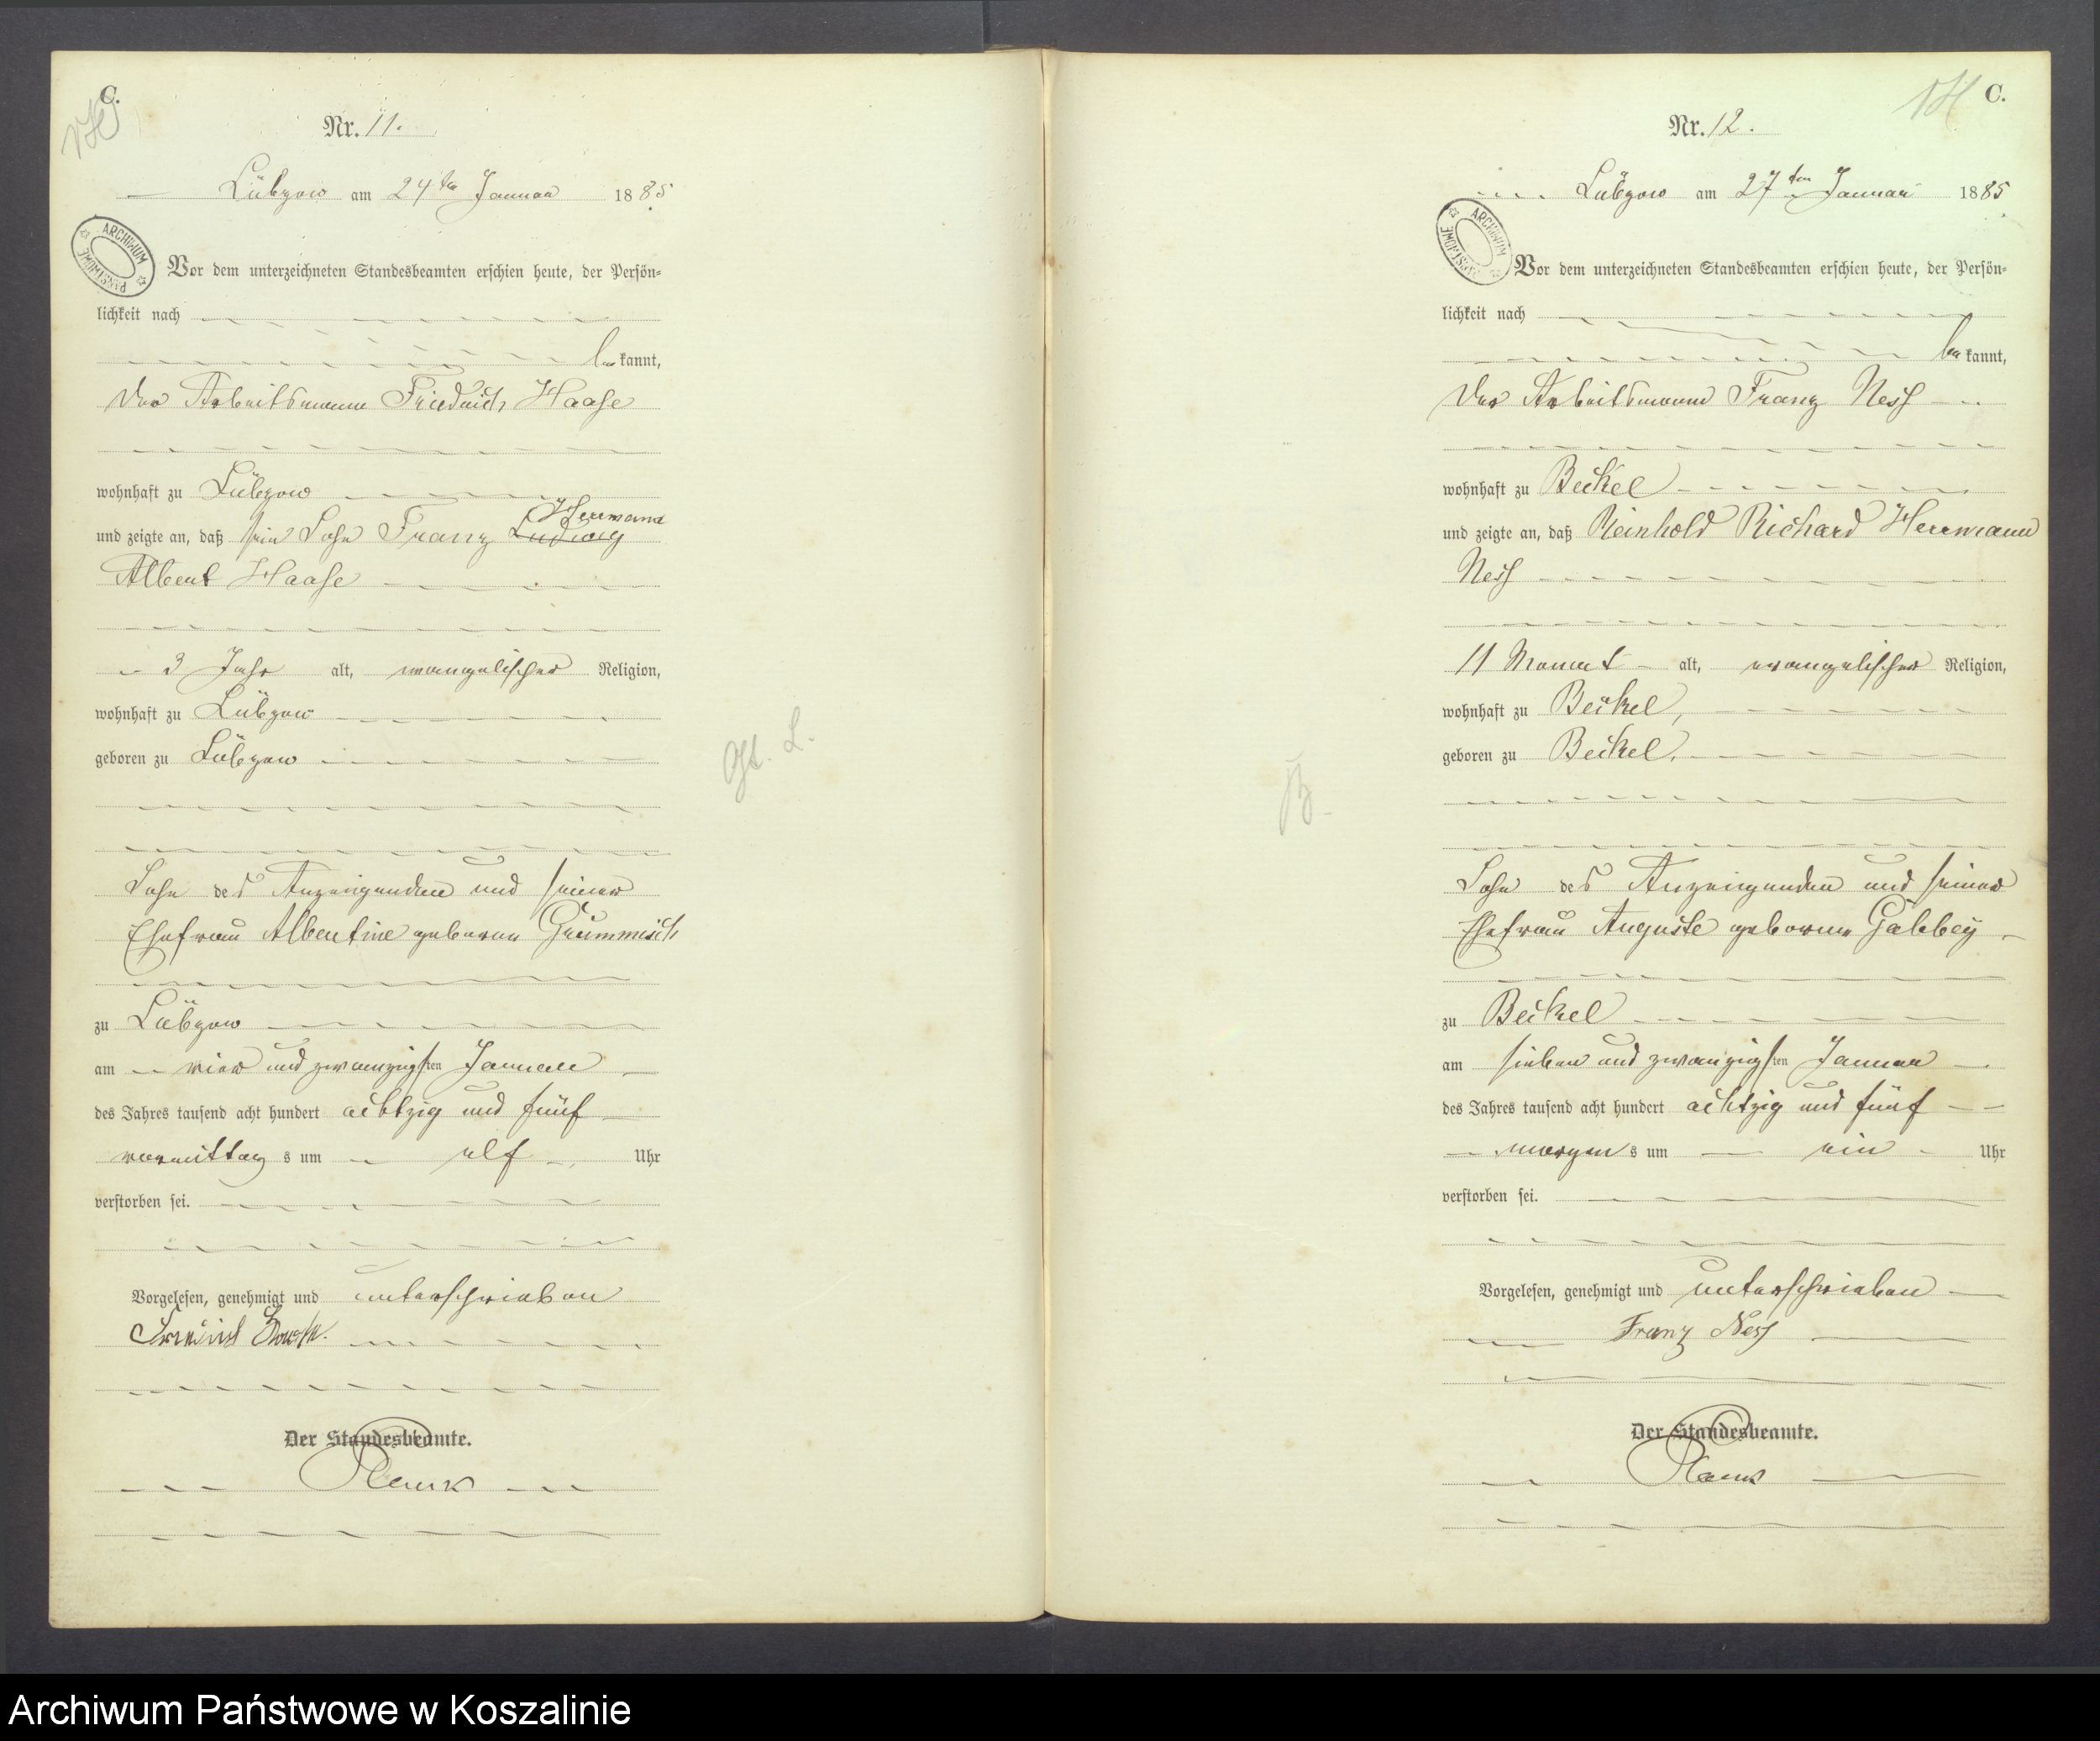 C.
Nr. 11.
Lübzow am 24ten Januar 1885
ARCHIWUM PAŃSTWOWE
Vor dem unterzeichneten Standesbeamten erschien heute, der Persön-
lichkeit nach
bekannt,
Der Arbeitsmann Friedrich Haase
wohnhaft zu Lübzow
Herrmann
und zeigte an, daß sein Sohn Franz Ludwig
Albert Haase
3 Jahr alt, evangelischer Religion,
wohnhaft zu Lübzow
geboren zu Lübzow
Sohn des Anzeigenden und seiner
Ehefrau Albertine geborne
zu Lübzow
am vier und zwanzigsten Januar
des Jahres tausend acht hundert achtzig und fünf
vormittags um elf Uhr
verstorben sei.
Vorgelesen, genehmigt und unterschrieben
Der Standesbeamte.
C.
Nr. 12.
Lübzow am 27ten Januar 1885
ARCHIWUM PAŃSTWOWE
Vor dem unterzeichneten Standesbeamten erschien heute, der Persön-
lichkeit nach
bekannt,
Der Arbeitsmann Franz Ness
wohnhaft zu Beckel
und zeigte an, daß Reinhold Richard Herrmann
Ness
11 Monat alt, evangelischer Religion,
wohnhaft zu Beckel,
geboren zu Beckel,
Sohn des Anzeigenden und seiner
Ehefrau Auguste geborne Gabbey
zu Beckel
am sieben und zwanzigsten Januar
des Jahres tausend acht hundert achtzig und fünf
morgens um ein Uhr
verstorben sei.
Vorgelesen, genehmigt und unterschrieben
Franz Ness
Der Standesbeamte.
Archiwum Państwowe w Koszalinie